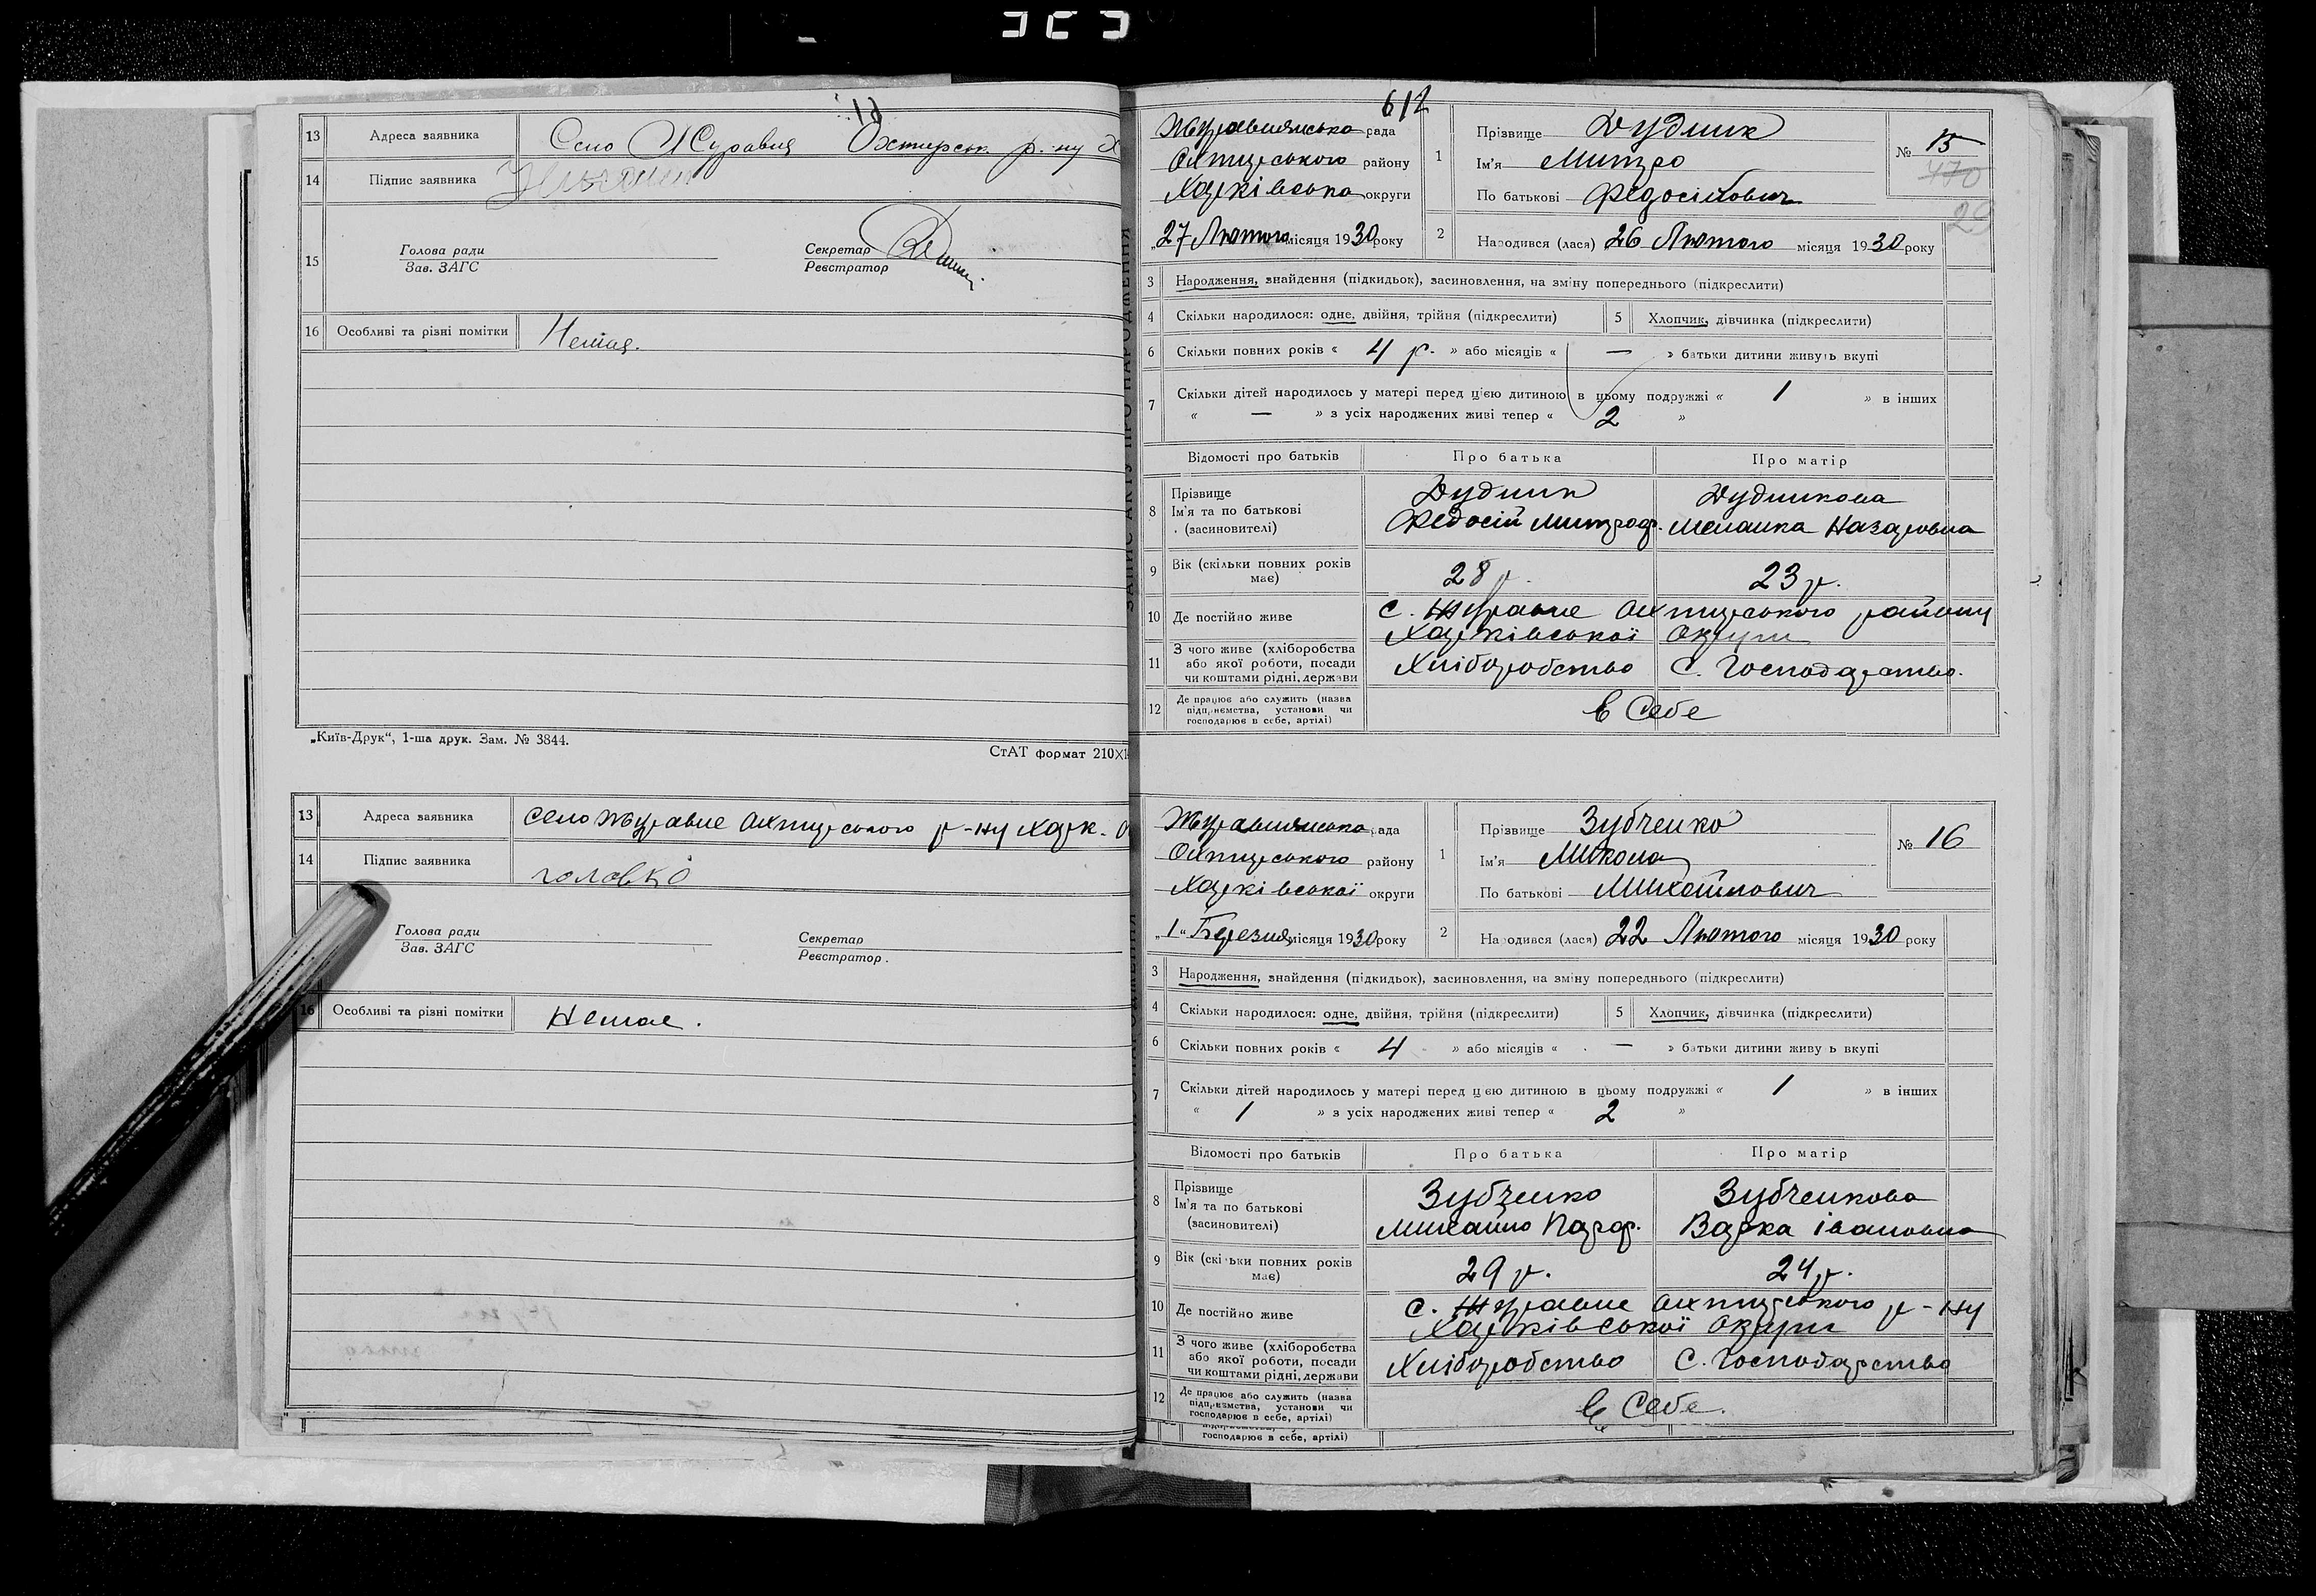 13 Адреса заявника Село Журавля Охтирськ. р-ну Х
14 Підпис заявника
15 Голова ради Зав. ЗАГС Секретар Реєстратор
16 Особливі та різні помітки Немає.
„Київ-Друк“, 1-ша друк. Зам. № 3844.
СтАТ формат 210Х
13 Адреса заявника Село Журавле Охтирського р-ну Харк. О
14 Підпис заявника головко
Голова ради Зав. ЗАГС Секретар Реєстратор.
16 Особливі та різні помітки Немає.
612
Журавлянська рада
Охтирського району
Харківська округи
„27 Лютого місяця 1930 року
1 Прізвище Дудник
Ім'я Митро
По батькові Федосійович
№ 15
470
29
2 Народився (лася) 26 Лютого місяця 1930 року
3 Народження, знайдення (підкидьок), засиновлення, на зміну попереднього (підкреслити)
4 Скільки народилося: одне, двійня, трійня (підкреслити) 5 Хлопчик, дівчинка (підкреслити)
6 Скільки повних років « 4 р. » або місяців « — » батьки дитини живуть вкупі
7 Скільки дітей народилось у матері перед цією дитиною в цьому подружжі « 1 » в інших
« — » з усіх народжених живі тепер « 2 »
Відомості про батьків Про батька Про матір
8 Прізвище Ім'я та по батькові (засновителі) Дудник Федосій Митроф. Дудникова Меланка Назаровна
9 Вік (скільки повних років має) 28 р. 23 р.
10 Де постійно живе С. Журавле Охтирського району
Харківської Округи
11 З чого живе (хліборобства або якої роботи, посади чи коштами рідні, держави Хліборобство С. Господарство.
12 Де працює або служить (назва підприємства, установи чи господарює в себе, артілі) в Себе
Журавлянська рада
Охтирського району
Харківської округи
„1“ Березня місяця 1930 року
1 Прізвище Зубченко
Ім'я Микола
По батькові Михайлович
№ 16
2 Народився (лася) 22 Лютого місяця 1930 року
3 Народження, знайдення (підкидьок), засиновлення, на зміну попереднього (підкреслити)
4 Скільки народилося: одне, двійня, трійня (підкреслити) 5 Хлопчик, дівчинка (підкреслити)
6 Скільки повних років « 4 » або місяців « — » батьки дитини живу ь вкупі
7 Скільки дітей народилось у матері перед цією дитиною в цьому подружжі « 1 » в інших
« 1 » з усіх народжених живі тепер « 2 »
Відомості про батьків Про батька Про матір
8 Прізвище Ім'я та по батькові (засиновителі) Зубченко Михайло Парф. Зубченкова Варка Івановна
9 Вік (скільки повних років має) 29 р. 24 р.
10 Де постійно живе С. Журавле Охтирського р-ну
Харківської Округи
11 З чого живе (хліборобства або якої роботи, посади чи коштами рідні, держави Хліборобство С. Господарство
12 Де працює або служить (назва підприємства, установи чи господарює в себе, артілі) в Себе.
господарює в себе, артілі)